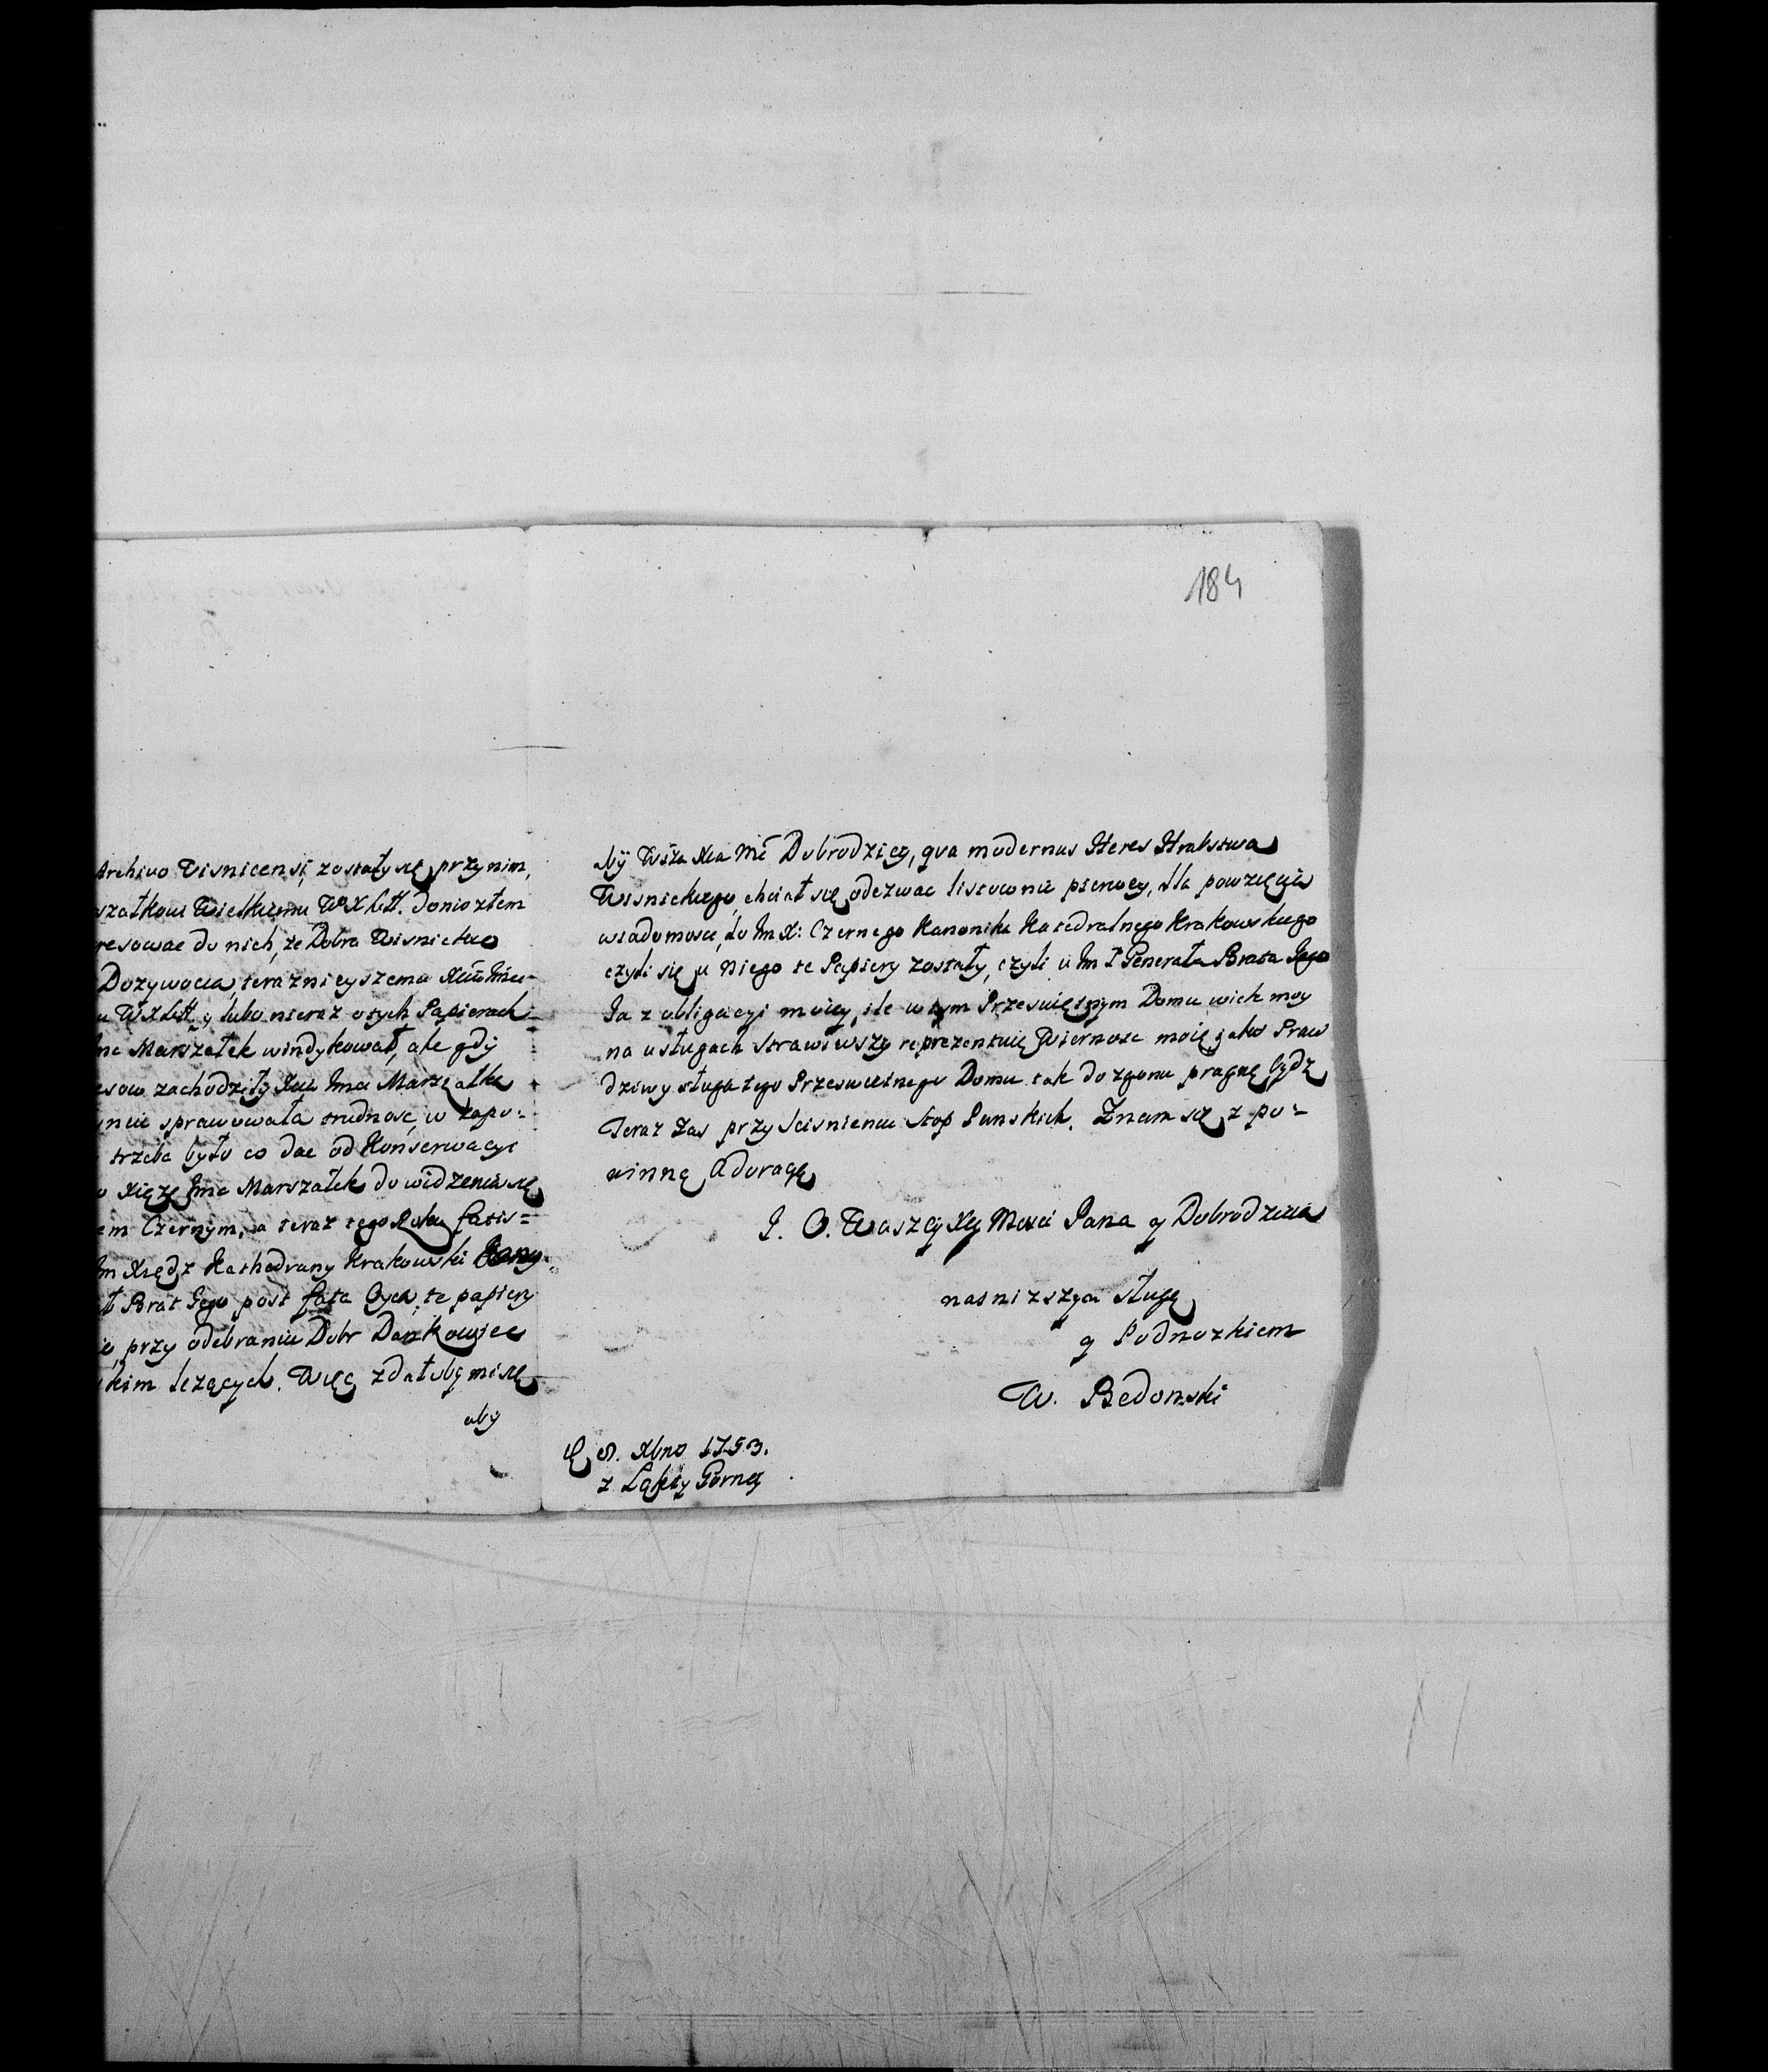 184
Archivo Visnicensi, zostały się przy nim,
szałkowi Wielkiemu W X Litt. doniozłem
resować do nich, że Dobra Wisnickie
Dozywocia, teraznieyszemu
u W X Litt. y lubo nieraz o tych Papierach
Marszałek windykował, ale gdy
esow zachodziły Imci Marszałka
sprawowała trudnosc, w zapo-
trzeba było co dac od Konserwacyi
Xiążę Imc Marszałek do widzenia się
em Czernym, a teraz tego Roku fatis=
Im Xsiędz Kathedrany Krakowski
ł Brat Jego post fata Oyca, te papiery
przy odebraniu Dobr Dankowice
kim lezących. Więc zdałoby mi się
aby
aby Wsza Xca Mć Dobrodziey, qva modernus Heres Hrabstwa
Wisnickiego, chciał się odezwac listownie pierwey, dla powzięcia
wiadomosci, do Im X: Czernego Kanonika Katedralnego Krakowskiego
czyli się u Niego te Papiery zostały, czyli u Im P Generała Brata Jego
Ja z obligacyi moiey, ile w tym Przeswiętnym Domu wiek moy
na usługach strawiwszy reprezentuię Wiernosc moię jako Praw
dziwy sługa tego Przeswietnego Domu tak do zgonu pragnę bydz
Teraz zas przy scisnieniu Stop Panskich. Znam się z po-
winną Adoracyą
J. O. Waszey Xcy Mosci Pana y Dobrodzieia
nasnizszym sługą
y Podnozkiem
W. Bedonski
Xbro 1753.
z Łąkty Gorney